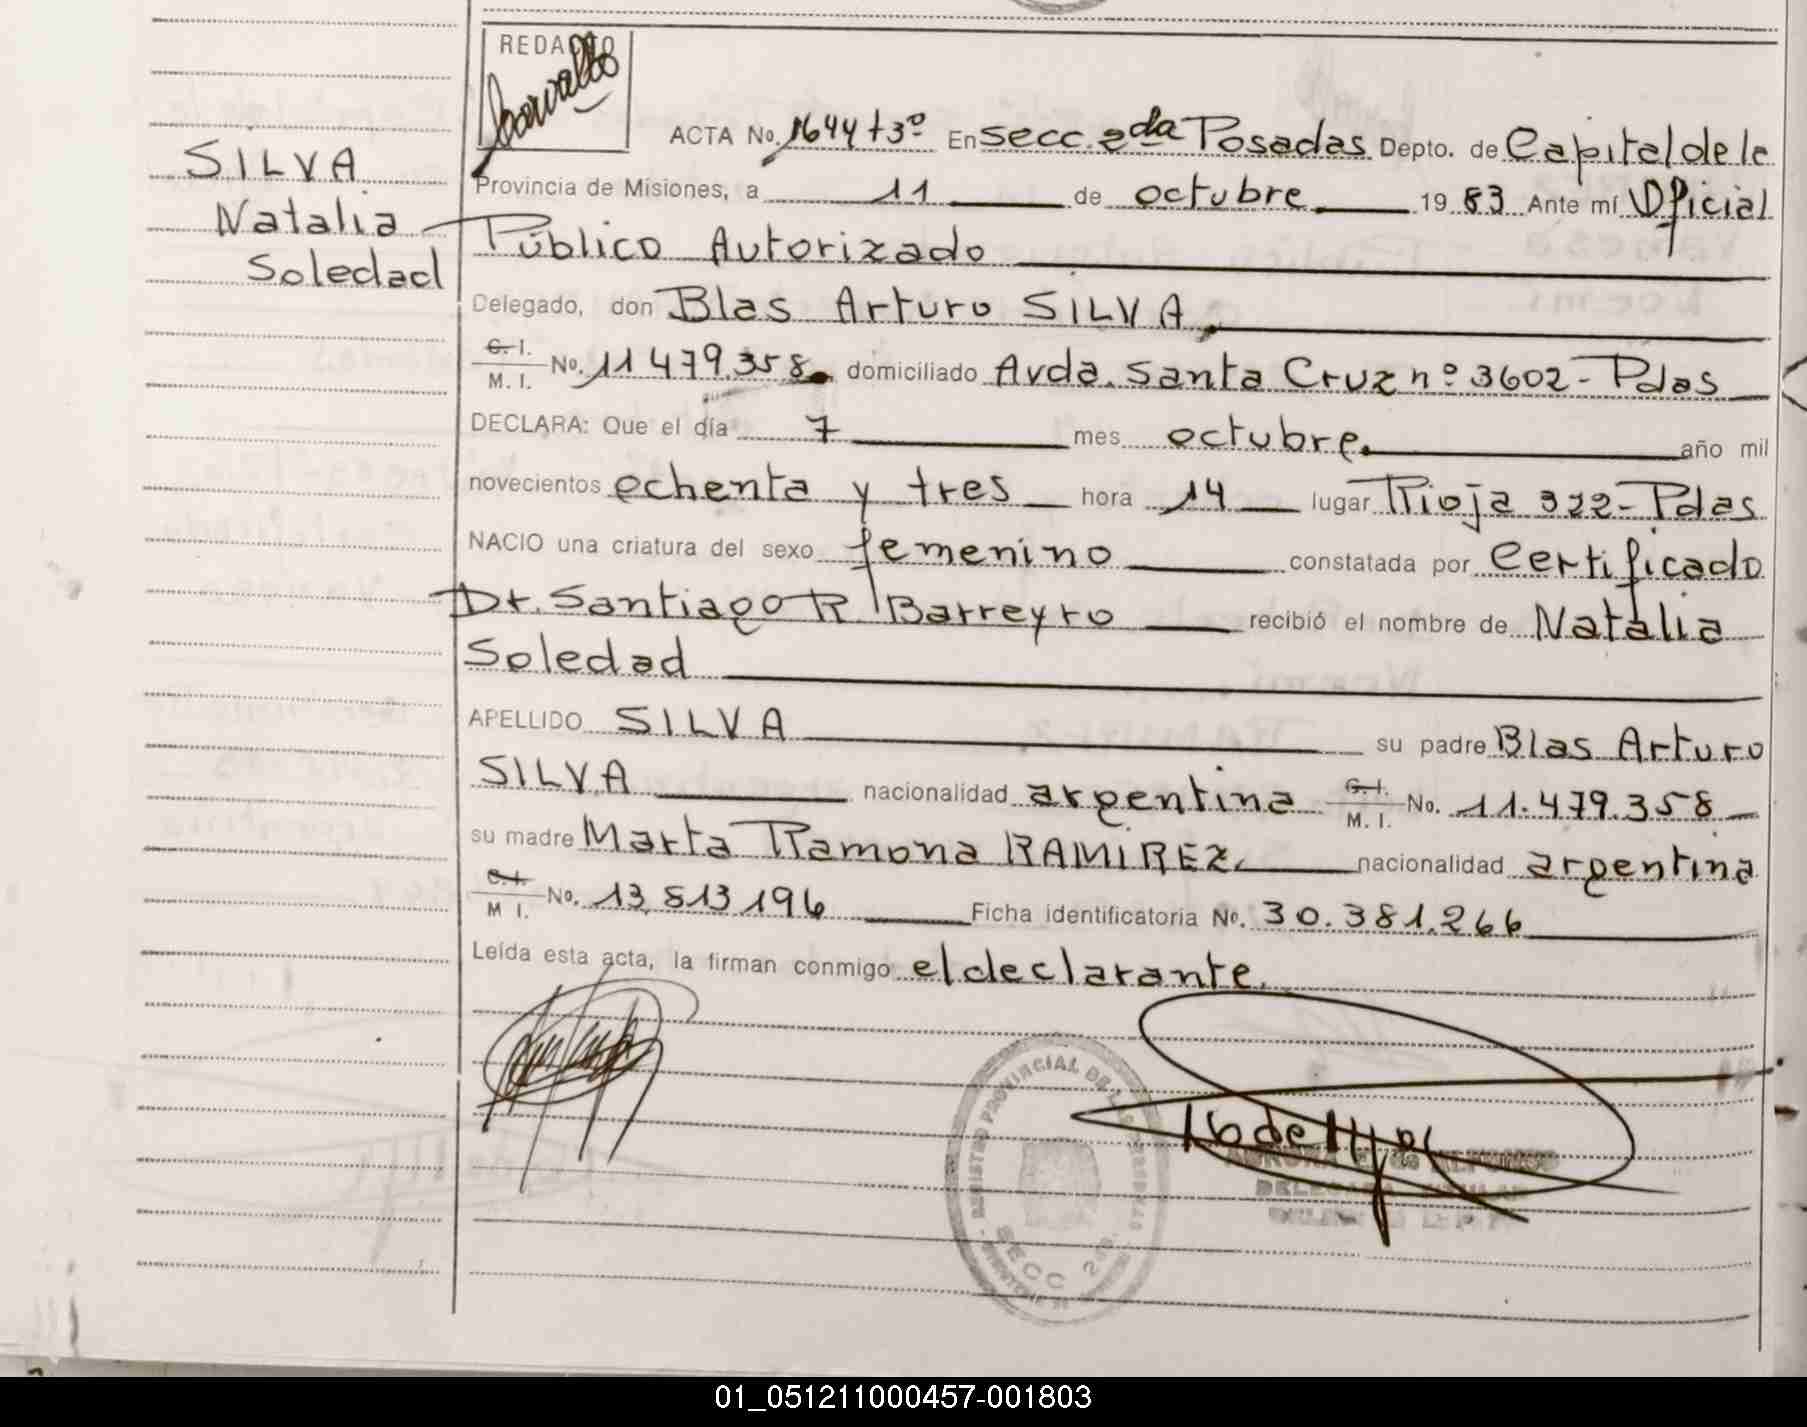 REDACTO
ACTA No. 1644 t3º En Secc. 2da Posadas Depto. de Capital de la
SILVA
Provincia de Misiones, a 11 de octubre 19 83 Ante mí Oficial
Natalia
Público Autorizado
Soledad
Delegado, don Blas Arturo SILVA
C. I. M. I. No. 11 479.358 domiciliado Avda. Santa Cruz nº 3602 - Pdas
DECLARA: Que el día 7 mes octubre año mil
novecientos ochenta y tres hora 14 lugar Rioja 322 - Pdas
NACIO una criatura del sexo femenino constatada por Certificado
Dr. Santiago R. Barreyro recibió el nombre de Natalia
Soledad
APELLIDO SILVA su padre Blas Arturo
SILVA nacionalidad argentina C. I. M. I. No. 11.479.358
su madre Marta Ramona RAMIREZ nacionalidad argentina
C. I. M I. No. 13,813,196 Ficha identificatoria No. 30.381.266
Leída esta acta, la firman conmigo el declarante.
REGISTRO PROVINCIAL DE LAS PERSONAS
SECC 2da.
DELEGADA TITULAR
01_051211000457-001803